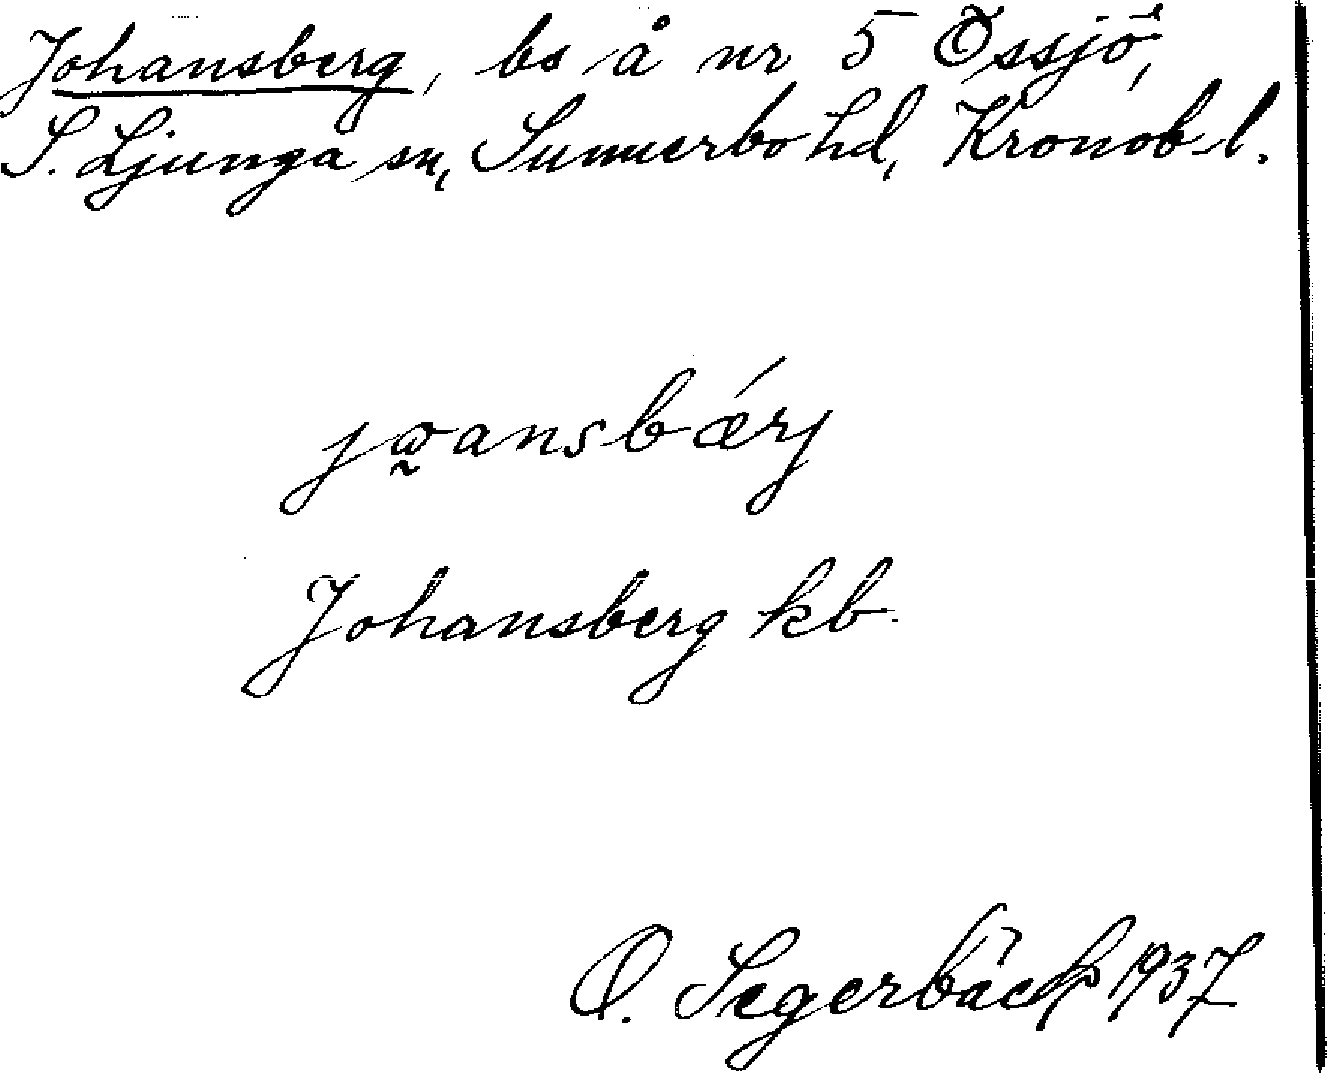 Johansberg, bs å nr 5 Össjö,
S. Ljunga sn, Sunnerbo hd, Kronob. l.
jω̰ansbǽrj
Johansberg kb.
O. Segerbäck 1937